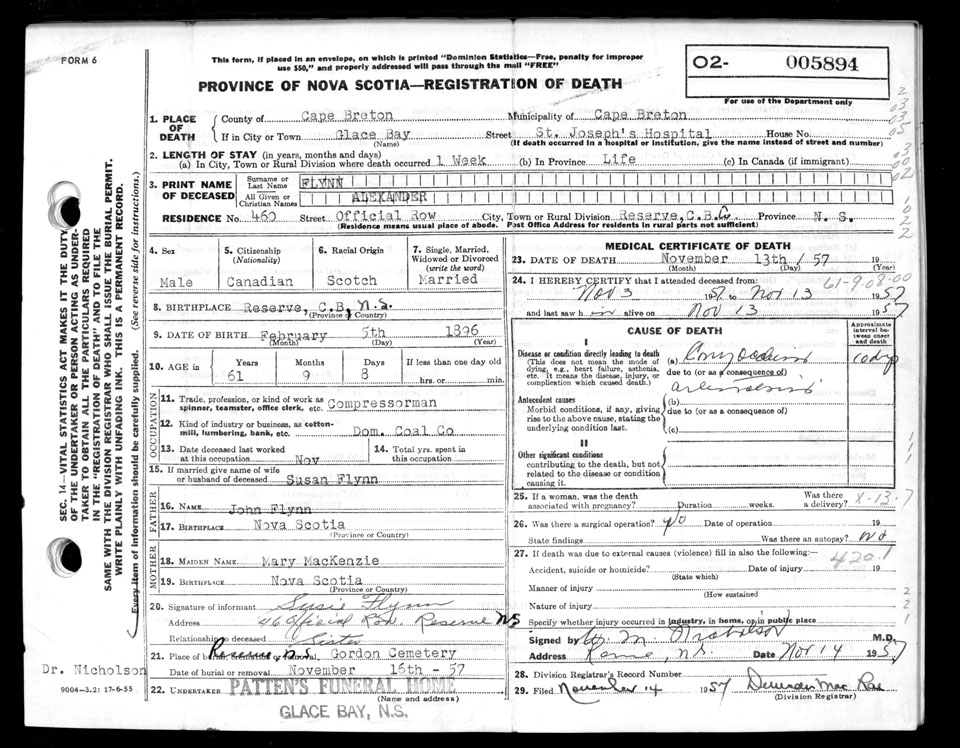 FORM 6
This form, if placed in an envelope, on which is printed "Dominion Statistics—Free, penalty for improper
use $50," and properly addressed will pass through the mail "FREE"
PROVINCE OF NOVA SCOTIA—REGISTRATION OF DEATH
O2- 005894
For use of the Department only
1. PLACE OF DEATH
County of Cape Breton Municipality of Cape Breton
If in City or Town Glace Bay Street St. Joseph's Hospital House No.
(Name) (If death occurred in a hospital or institution, give the name instead of street and number)
2. LENGTH OF STAY (in years, months and days)
(a) In City, Town or Rural Division where death occurred 1 Week (b) In Province Life (c) In Canada (if immigrant)
3. PRINT NAME OF DECEASED
Surname or Last Name FLYNN
All Given or Christian Names ALEXANDER
RESIDENCE No. 460 Street Official Row City, Town or Rural Division Reserve, C.B. Province N. S.
(Residence means usual place of abode. Post Office Address for residents in rural parts not sufficient)
4. Sex Male
5. Citizenship (Nationality) Canadian
6. Racial Origin Scotch
7. Single, Married, Widowed or Divorced (write the word) Married
8. BIRTHPLACE Reserve, C.B, N.S.
(Province or Country)
9. DATE OF BIRTH February 5th 1896
(Month) (Day) (Year)
10. AGE in Years Months Days If less than one day old
61 9 8 hrs. or min.
OCCUPATION
11. Trade, profession, or kind of work as
spinner, teamster, office clerk, etc. Compressorman
12. Kind of industry or business, as cotton-
mill, lumbering, bank, etc. Dom. Coal Co
13. Date deceased last worked
at this occupation Nov
14. Total yrs. spent in
this occupation
15. If married give name of wife
or husband of deceased Susan Flynn
FATHER
16. Name John Flynn
17. Birthplace Nova Scotia
(Province or Country)
MOTHER
18. Maiden Name Mary MacKenzie
19. Birthplace Nova Scotia
(Province or Country)
20. Signature of informant Susie Flynn
Address 46 Official Row. Reserve NS
Relationship to deceased Sister
21. Place of burial, cremation or removal Reserve, N.S. Gordon Cemetery
Date of burial or removal November 16th - 57
22. Undertaker PATTEN'S FUNERAL HOME
(Name and address)
GLACE BAY, N.S.
MEDICAL CERTIFICATE OF DEATH
23. DATE OF DEATH November 13th / 57 19
(Month) (Day) (Year)
24. I HEREBY CERTIFY that I attended deceased from: 61-9-08-00
Nov 3 1957 to Nov 13 1957
and last saw him alive on Nov 13 1957
CAUSE OF DEATH
Approximate interval between onset and death
I
Disease or condition directly leading to death
(This does not mean the mode of
dying, e.g., heart failure, asthenia,
etc. It means the disease, injury, or
complication which caused death.)
(a)
due to (or as a consequence of)
Antecedent causes
Morbid conditions, if any, giving
rise to the above cause, stating the
underlying condition last.
(b)
due to (or as a consequence of)
(c)
II
Other significant conditions
contributing to the death, but not
related to the disease or condition
causing it.
25. If a woman, was the death
associated with pregnancy? Duration weeks.
Was there
a delivery? X-13-7
26. Was there a surgical operation? No Date of operation 19
State findings Was there an autopsy? No
27. If death was due to external causes (violence) fill in also the following:— 420.1
Accident, suicide or homicide? Date of injury 19
(State which)
Manner of injury
(How sustained
Nature of injury
Specify whether injury occurred in industry, in home, or in public place
Signed by W. M. Nicholson M.D.
Address N.S. Date Nov 14 1957
28. Division Registrar's Record Number
29. Filed November 14 1957 Mac Rae
(Division Registrar)
SEC. 14—VITAL STATISTICS ACT MAKES IT THE DUTY
OF THE UNDERTAKER OR PERSON ACTING AS UNDER-
TAKER TO OBTAIN ALL THE PARTICULARS REQUIRED
IN THE "REGISTRATION OF DEATH" AND TO FILE THE
SAME WITH THE DIVISION REGISTRAR WHO SHALL ISSUE THE BURIAL PERMIT.
WRITE PLAINLY WITH UNFADING INK. THIS IS A PERMANENT RECORD.
Every item of information should be carefully supplied. (See reverse side for instructions.)
Dr. Nicholson
9004-3.2: 17-6-55